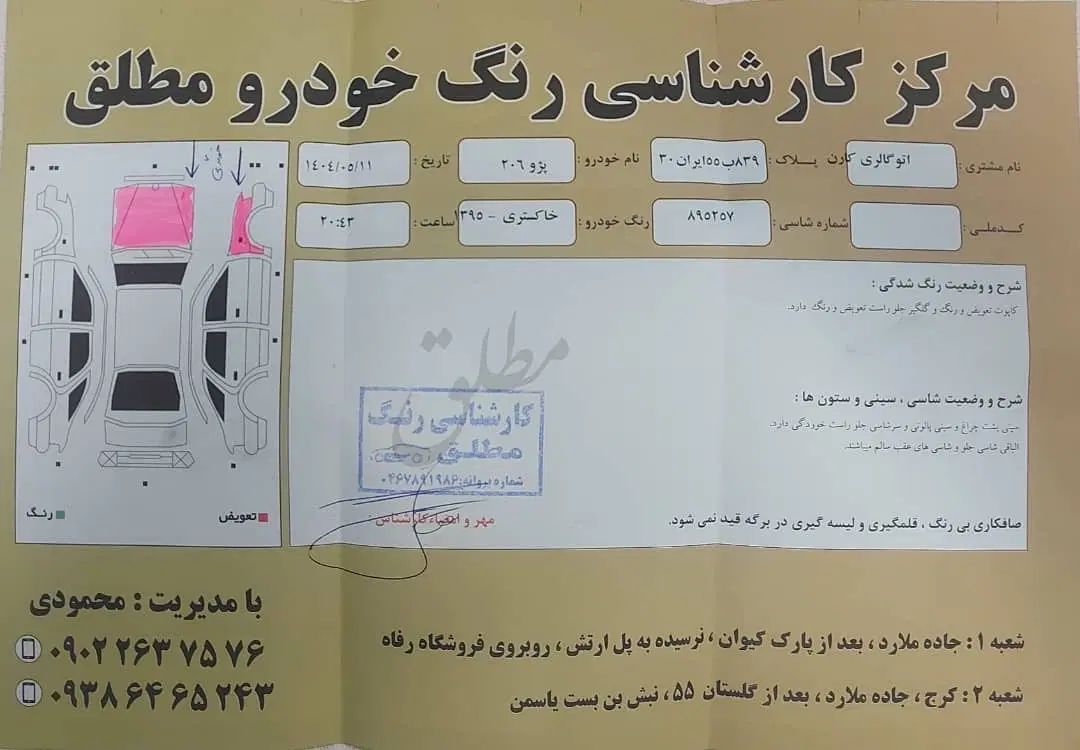 مرکز کارشناسی رنگ خودرو مطلق
نام مشتری : اتوگالری کارن پلاک : ۸۳۹ب۵۵ایران۳۰ نام خودرو : پژو ۲۰۶ تاریخ : ۱۴۰۴/۰۵/۱۱
کدملی : شماره شاسی : ۸۹۵۲۵۷ رنگ خودرو : خاکستری - ۱۳۹۵ ساعت : ۲۰:۴۳
شرح و وضعیت رنگ شدگی :
کاپوت تعویض و رنگ و گلگیر جلو راست تعویض و رنگ دارد.
شرح و وضعیت شاسی ، سینی و ستون ها :
سینی پشت چراغ و سینی پالونی و سرشاسی جلو راست خوردگی دارد.
الباقی شاسی جلو و شاسی های عقب سالم میباشند.
مطلق
کارشناسی رنگ
مطلق
شماره پروانه: ۰۴۶۷۸۹۱۹۸۶
مهر و امضاء کارشناس :
صافکاری بی رنگ ، قلمگیری و لیسه گیری در برگه قید نمی شود.
تعویض
رنگ
با مدیریت : محمودی
۰۹۰۲ ۲۶۳ ۷۵ ۷۶
۰۹۳۸ ۶۴ ۶۵ ۲۴۳
شعبه ۱ : جاده ملارد ، بعد از پارک کیوان ، نرسیده به پل ارتش ، روبروی فروشگاه رفاه
شعبه ۲ : کرج ، جاده ملارد ، بعد از گلستان ۵۵ ، نبش بن بست یاسمن